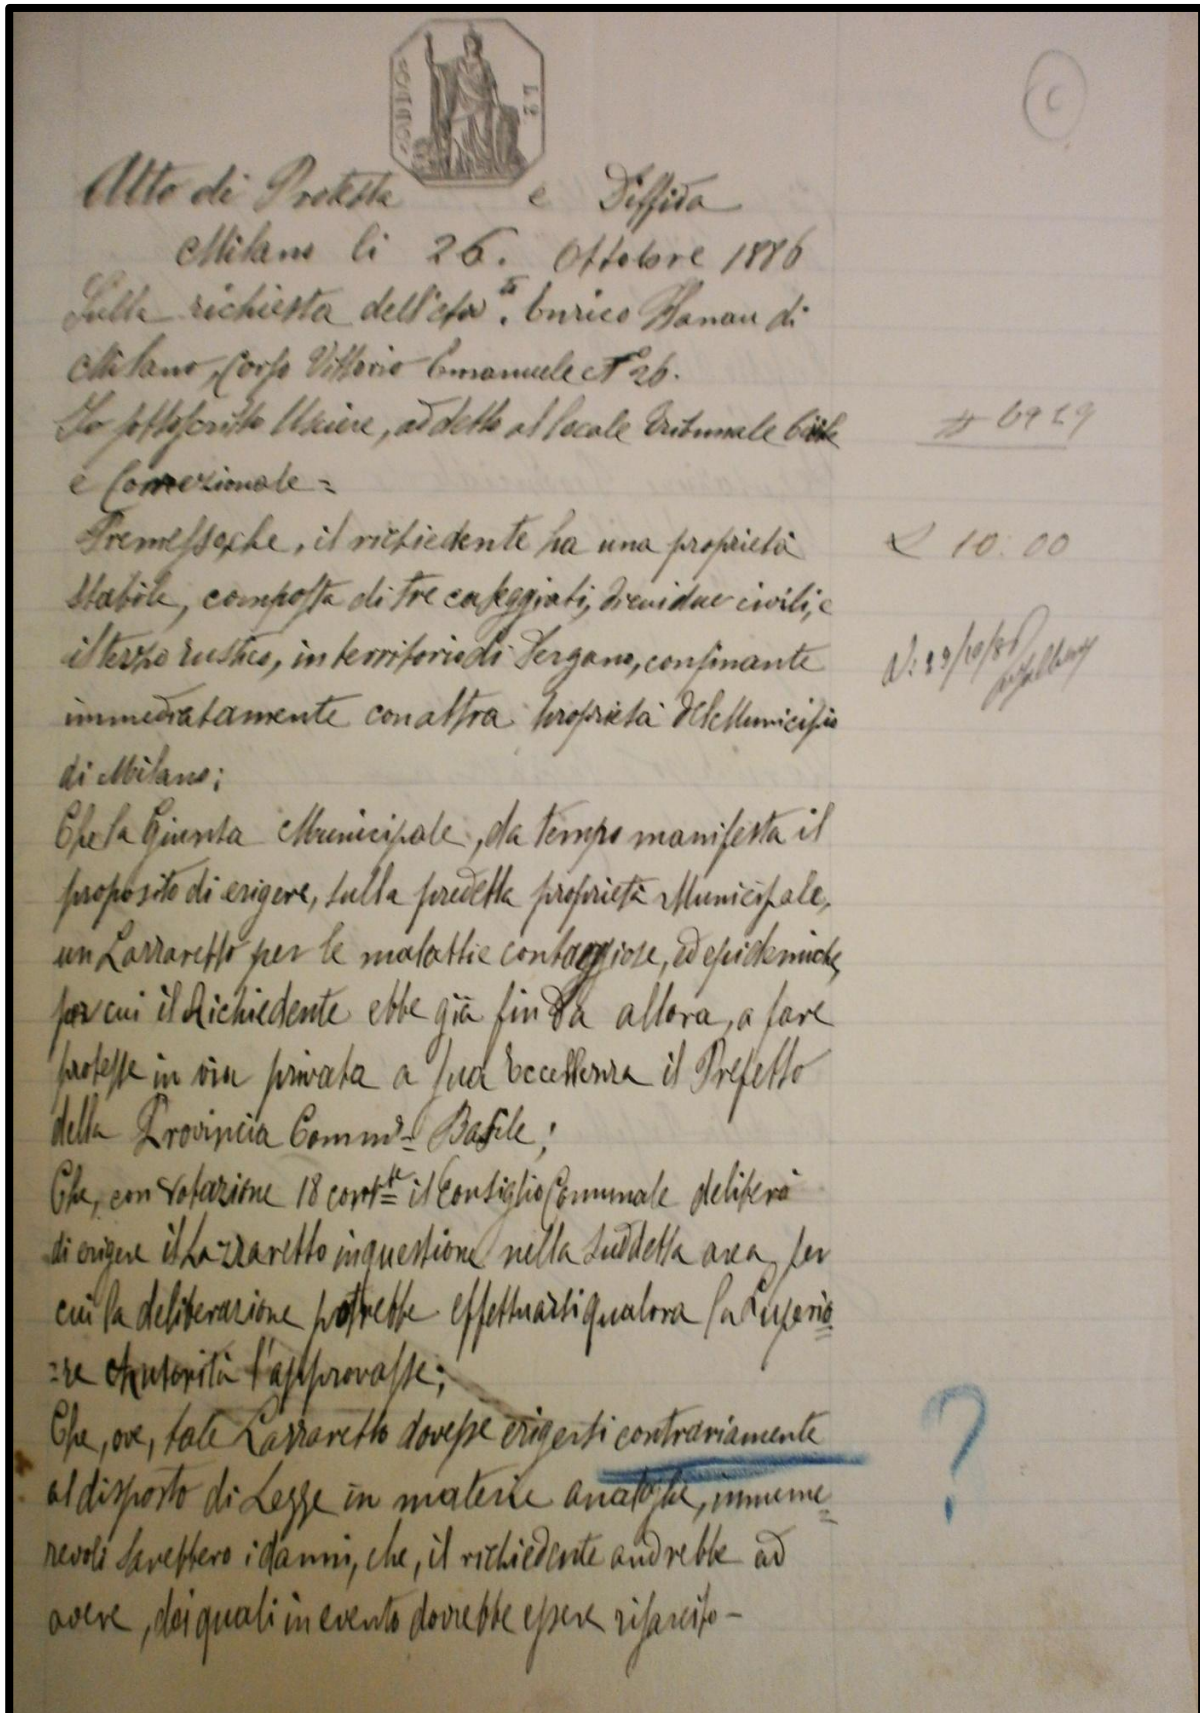 C
Atto di Protesta e Diffida
Milano li 26. Ottobre 1886
Sulla richiesta dell' Enrico Hanau di
Milano, Corso Vittorio Emanuele N 26.
Io sottoscritto Usciere, addetto al locale Tribunale Civile
# 6929
e Correzionale =
Premesso che, il richiedente ha una proprietà
L 10.00
stabile, composta di tre caseggiati, due civili, e
il terzo rustico, in territorio di Dergano, confinante
immediatamente con altra proprietà del Municipio
di Milano;
Che la Giunta Municipale, da tempo manifesta il
proposito di erigere, sulla predetta proprietà Municipale,
un Lazzaretto per le malattie contaggiose, ed epidemiche,
per cui il Richiedente ebbe già fin da allora, a fare
proteste in via privata a sua Eccellenza il Prefetto
della Provincia Comm.r Basile;
Che, con votazione 18 corr.te il Consiglio Comunale deliberò
di erigere il Lazzaretto in questione nella suddetta area, per
cui la deliberazione potrebbe effettuarsi qualora la Superio=
=re Autorità l'approvasse;
Che, ove, tale Lazzaretto dovesse erigersi contrariamente
?
al disposto di Legge in materie analoghe, innume=
revoli sarebbero i danni, che, il richiedente andrebbe ad
avere, dei quali in evento dovrebbe essere risarcito -